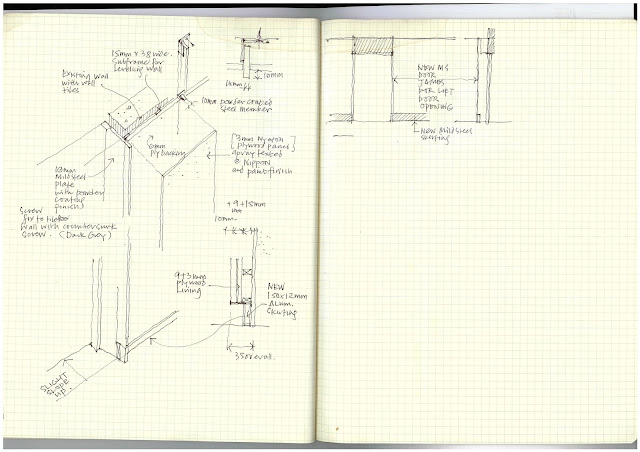 15mm x 38 wide
Subframe for
Levelling wall
Existing wall
with wall
tiles
10mm
10mm powder coated
steel member
6mm
Ply backing
3mm
plywood panel
spray
@ Nippon
and paint finish
10mm
Mild steel
plate
with powder
coating
finish
Screw
fix to
wall with countersunk
Screw.
(Dark Grey)
+9+15mm
10mm
9+3mm
plywood
Lining
NEW
150x12mm
ALUM.
Skirting
350 overall.
SLIGHT
SLOPE
UP.
NEW MS
DOOR
JAMBS
FOR LIFT
DOOR
OPENING
New Mild steel
skirting